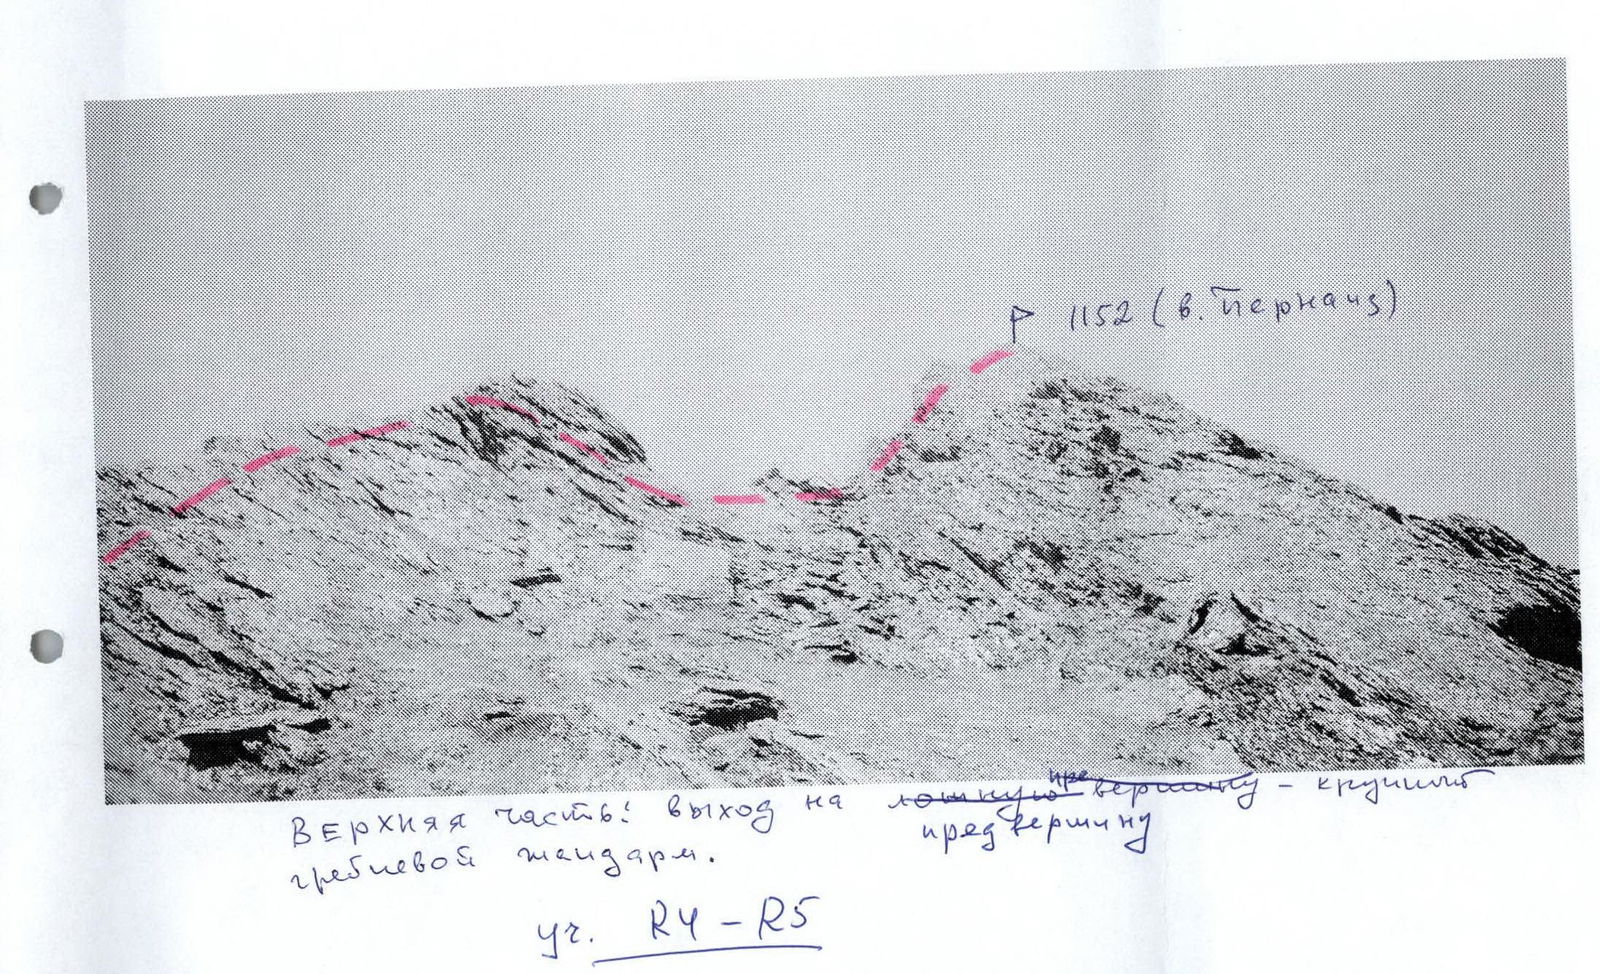 1152 (в. Пернаиз)
Верхняя часть: выход на ложную вершину - крупный
предвершину
гребневой жандарм.
уч. R4-R5